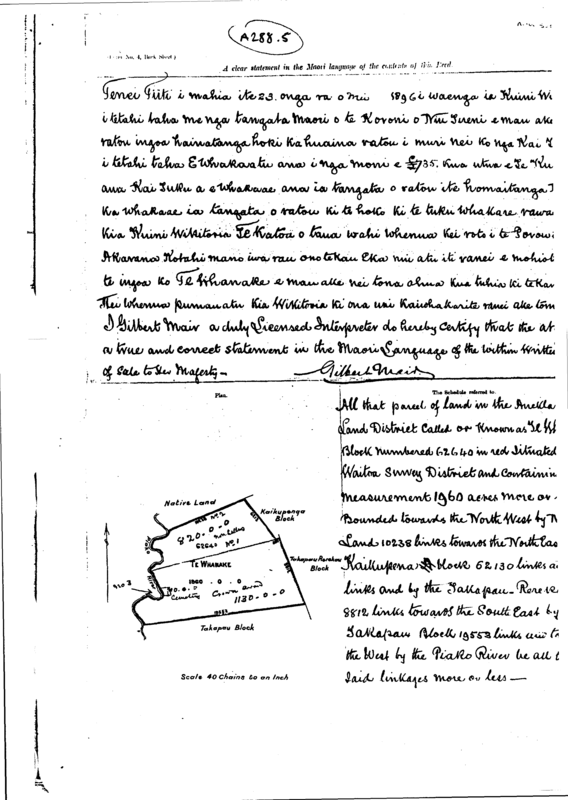 A288.5
A clear statement in the Maori language of the contents of this Deed
Tenei Tiiti i mahia ite 23. onga ra o Mei 1896 i waenga ia Kuini Wi
i tetahi taha me nga tangata Maori o te Koroni o Niu Tireni e mau ake
ratou ingoa hainatanga hoki kahuaina ratou i muri nei ko nga Kai T
i tetahi taha E Whakaatu ana i nga moni e £735. Kua utua e Te Ku
aua Kai Tuku a e whakaae ana ia tangata o ratou ite homaitanga
Ka whakaae ia tangata o ratou ki te hoko ki te tuku whakare rawa
Kia Kuini Wikitoria Te Katoa o taua wahi whenua kei roto i te Porowi
Akarana Kotahi mano iwa rau ono tekau Eka nui atu iti ranei e mohiot
te ingoa ko Te Whanake e mau ake nei tona ahua kua tuhia ki te Kar
Hei whenua pumau atu Kia Wikitoria ki ona uri Kaiwhakarite ranei ake tonu
I Gilbert Mair a duly Licensed Interpreter do hereby certify that the ab
a true and correct statement in the Maori Language of the within written
of Sale to Her Majesty —
Gilbert Mair
Plan.
Native Land
820-0-0
62640 No 1
Kaikuponga
Block
Te Whanake
1960 - 0 - 0
Cemetery Crown award
1130-0-0
No 3
Takapau Rerekau
Block
Takapau Block
Scale 40 Chains to an Inch
The Schedule referred to.
All that parcel of land in the Auckla
Land District Called or Known as Te Wh
Block numbered 62640 in red Situated
Waitoa Survey District and Containin
measurement 1960 acres more or
Bounded towards the North West by N
Land 10238 links towards the North Eas
Kaikupona Block 52130 links a
links and by the Takapau-Rereke
8812 links towards the South East by
Takapau Block 19553 links
the West by the Piako River be all t
Said linkages more or less —